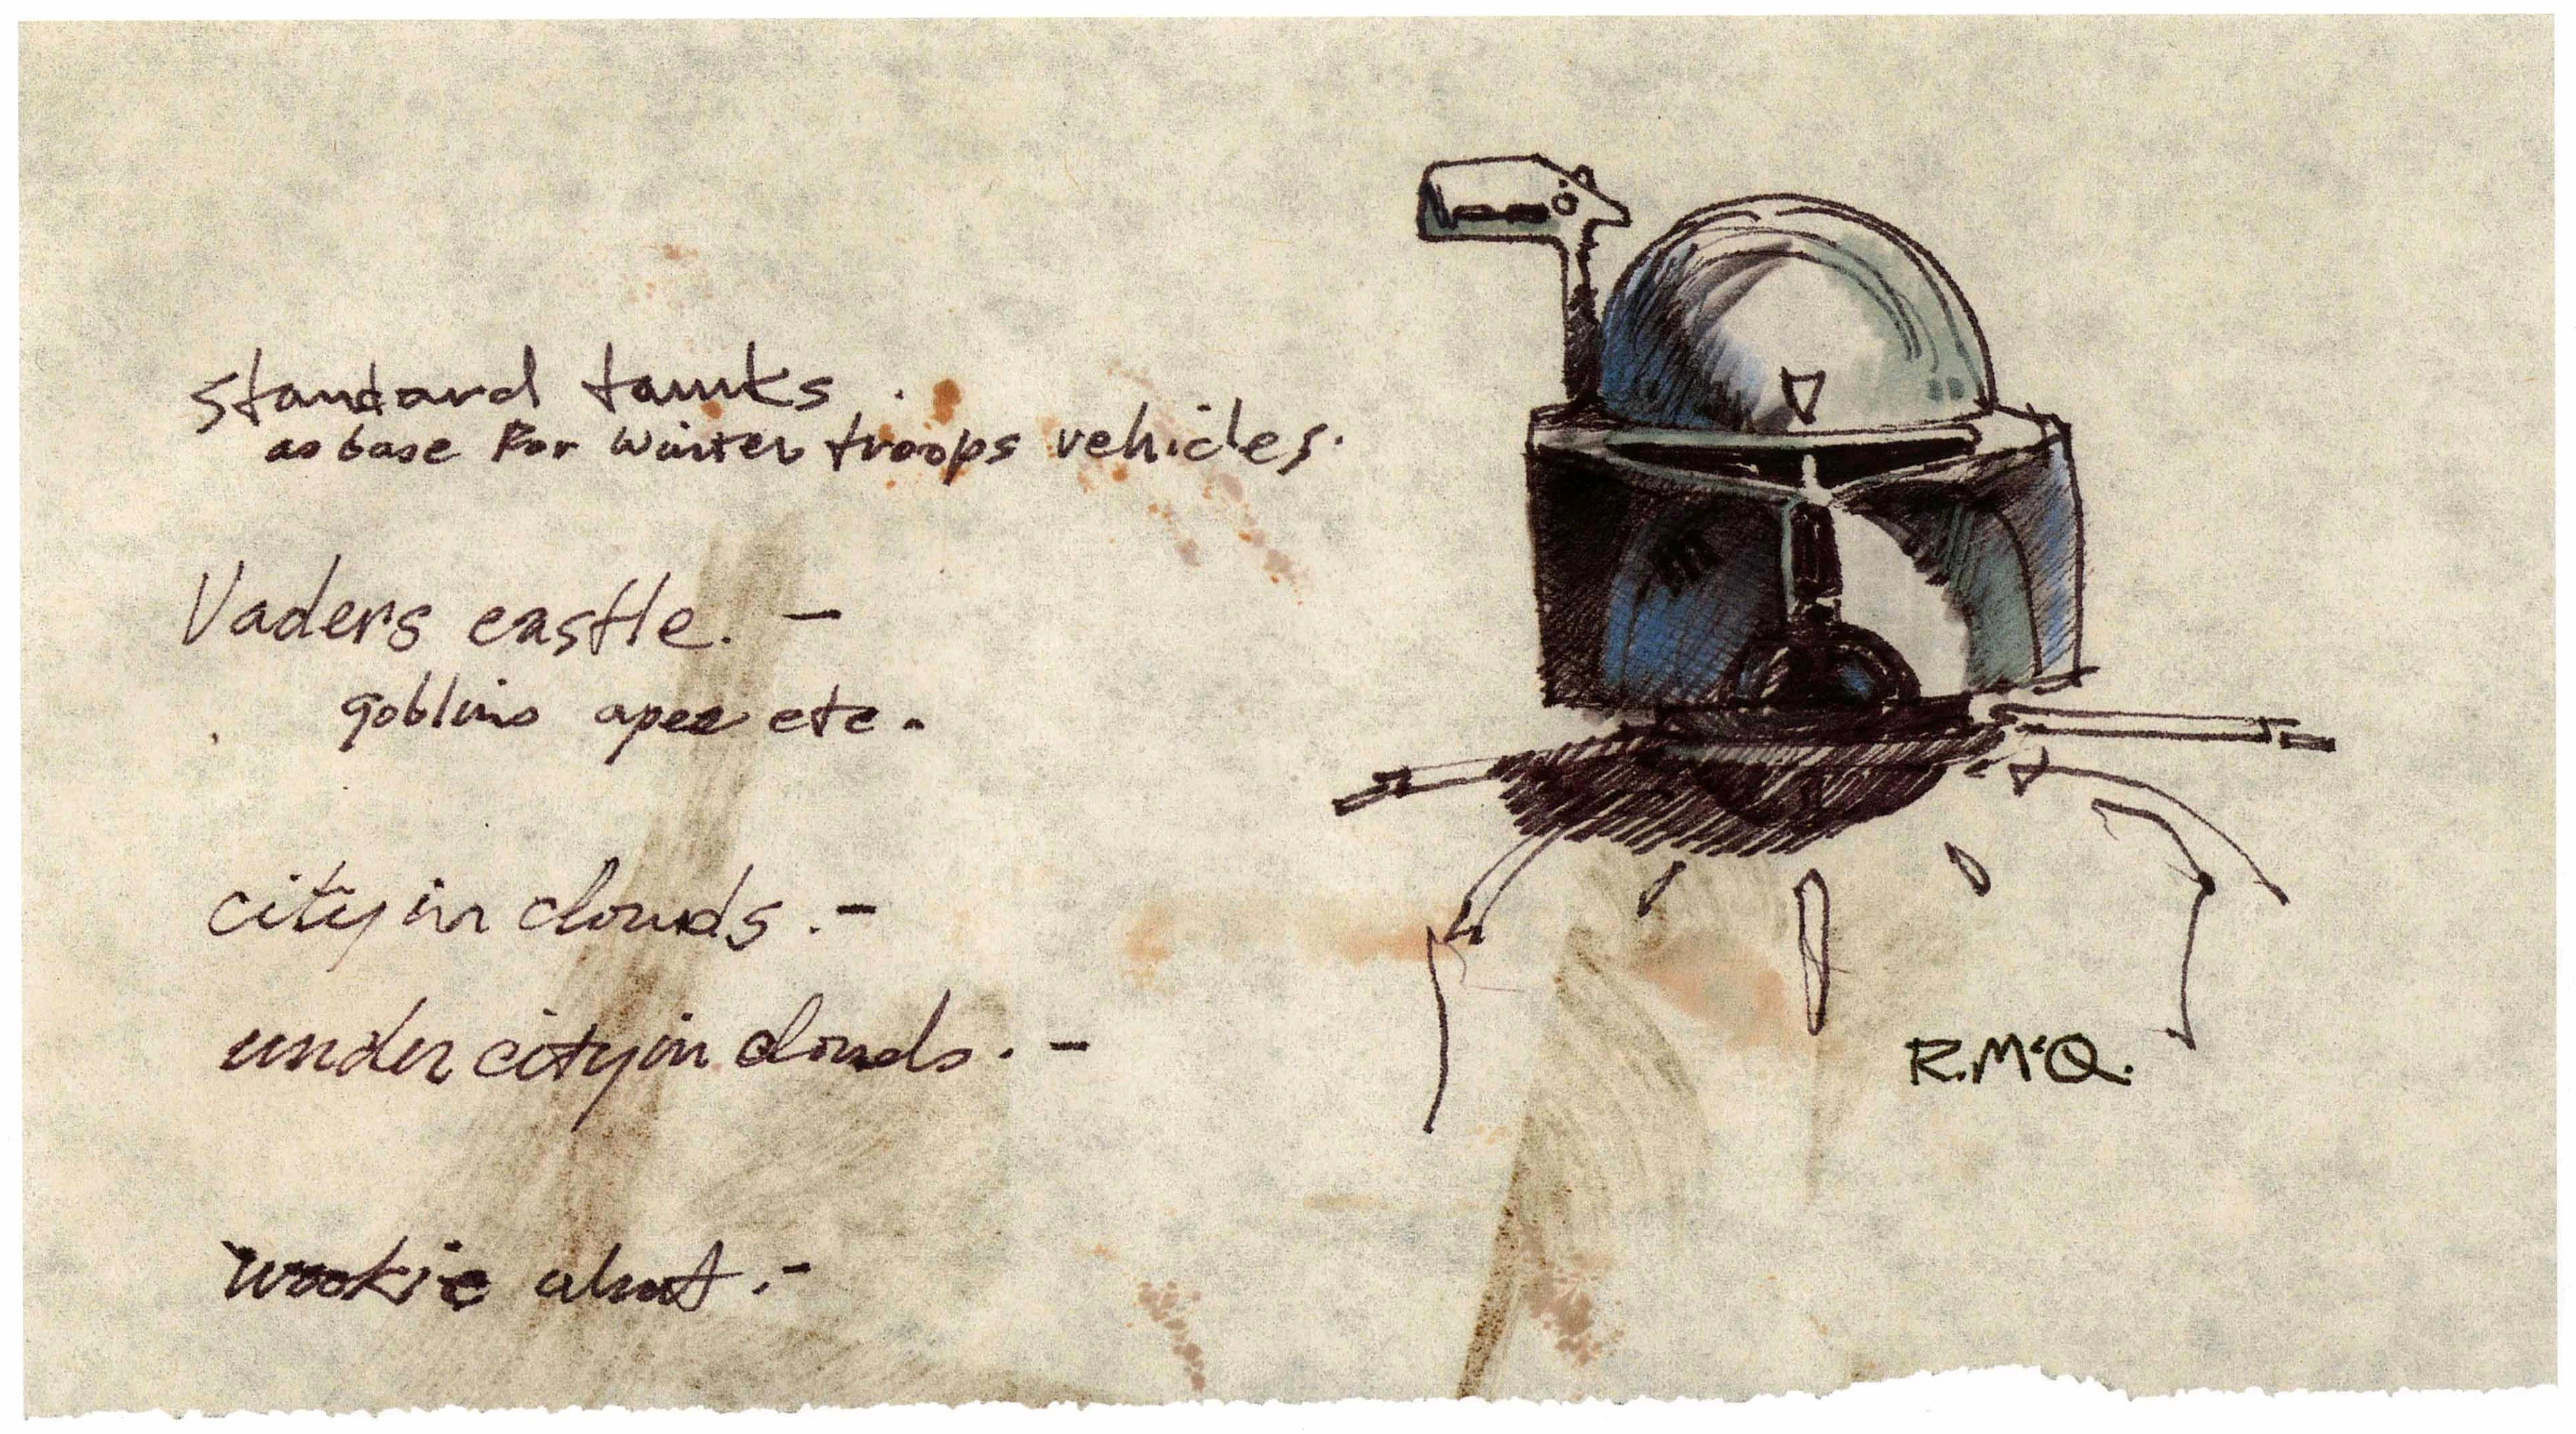 standard tanks.
as base for winter troops vehicles.
Vaders castle. -
goblins apes etc.
city in clouds. -
under city in clouds. -
wookie -
R.McQ.